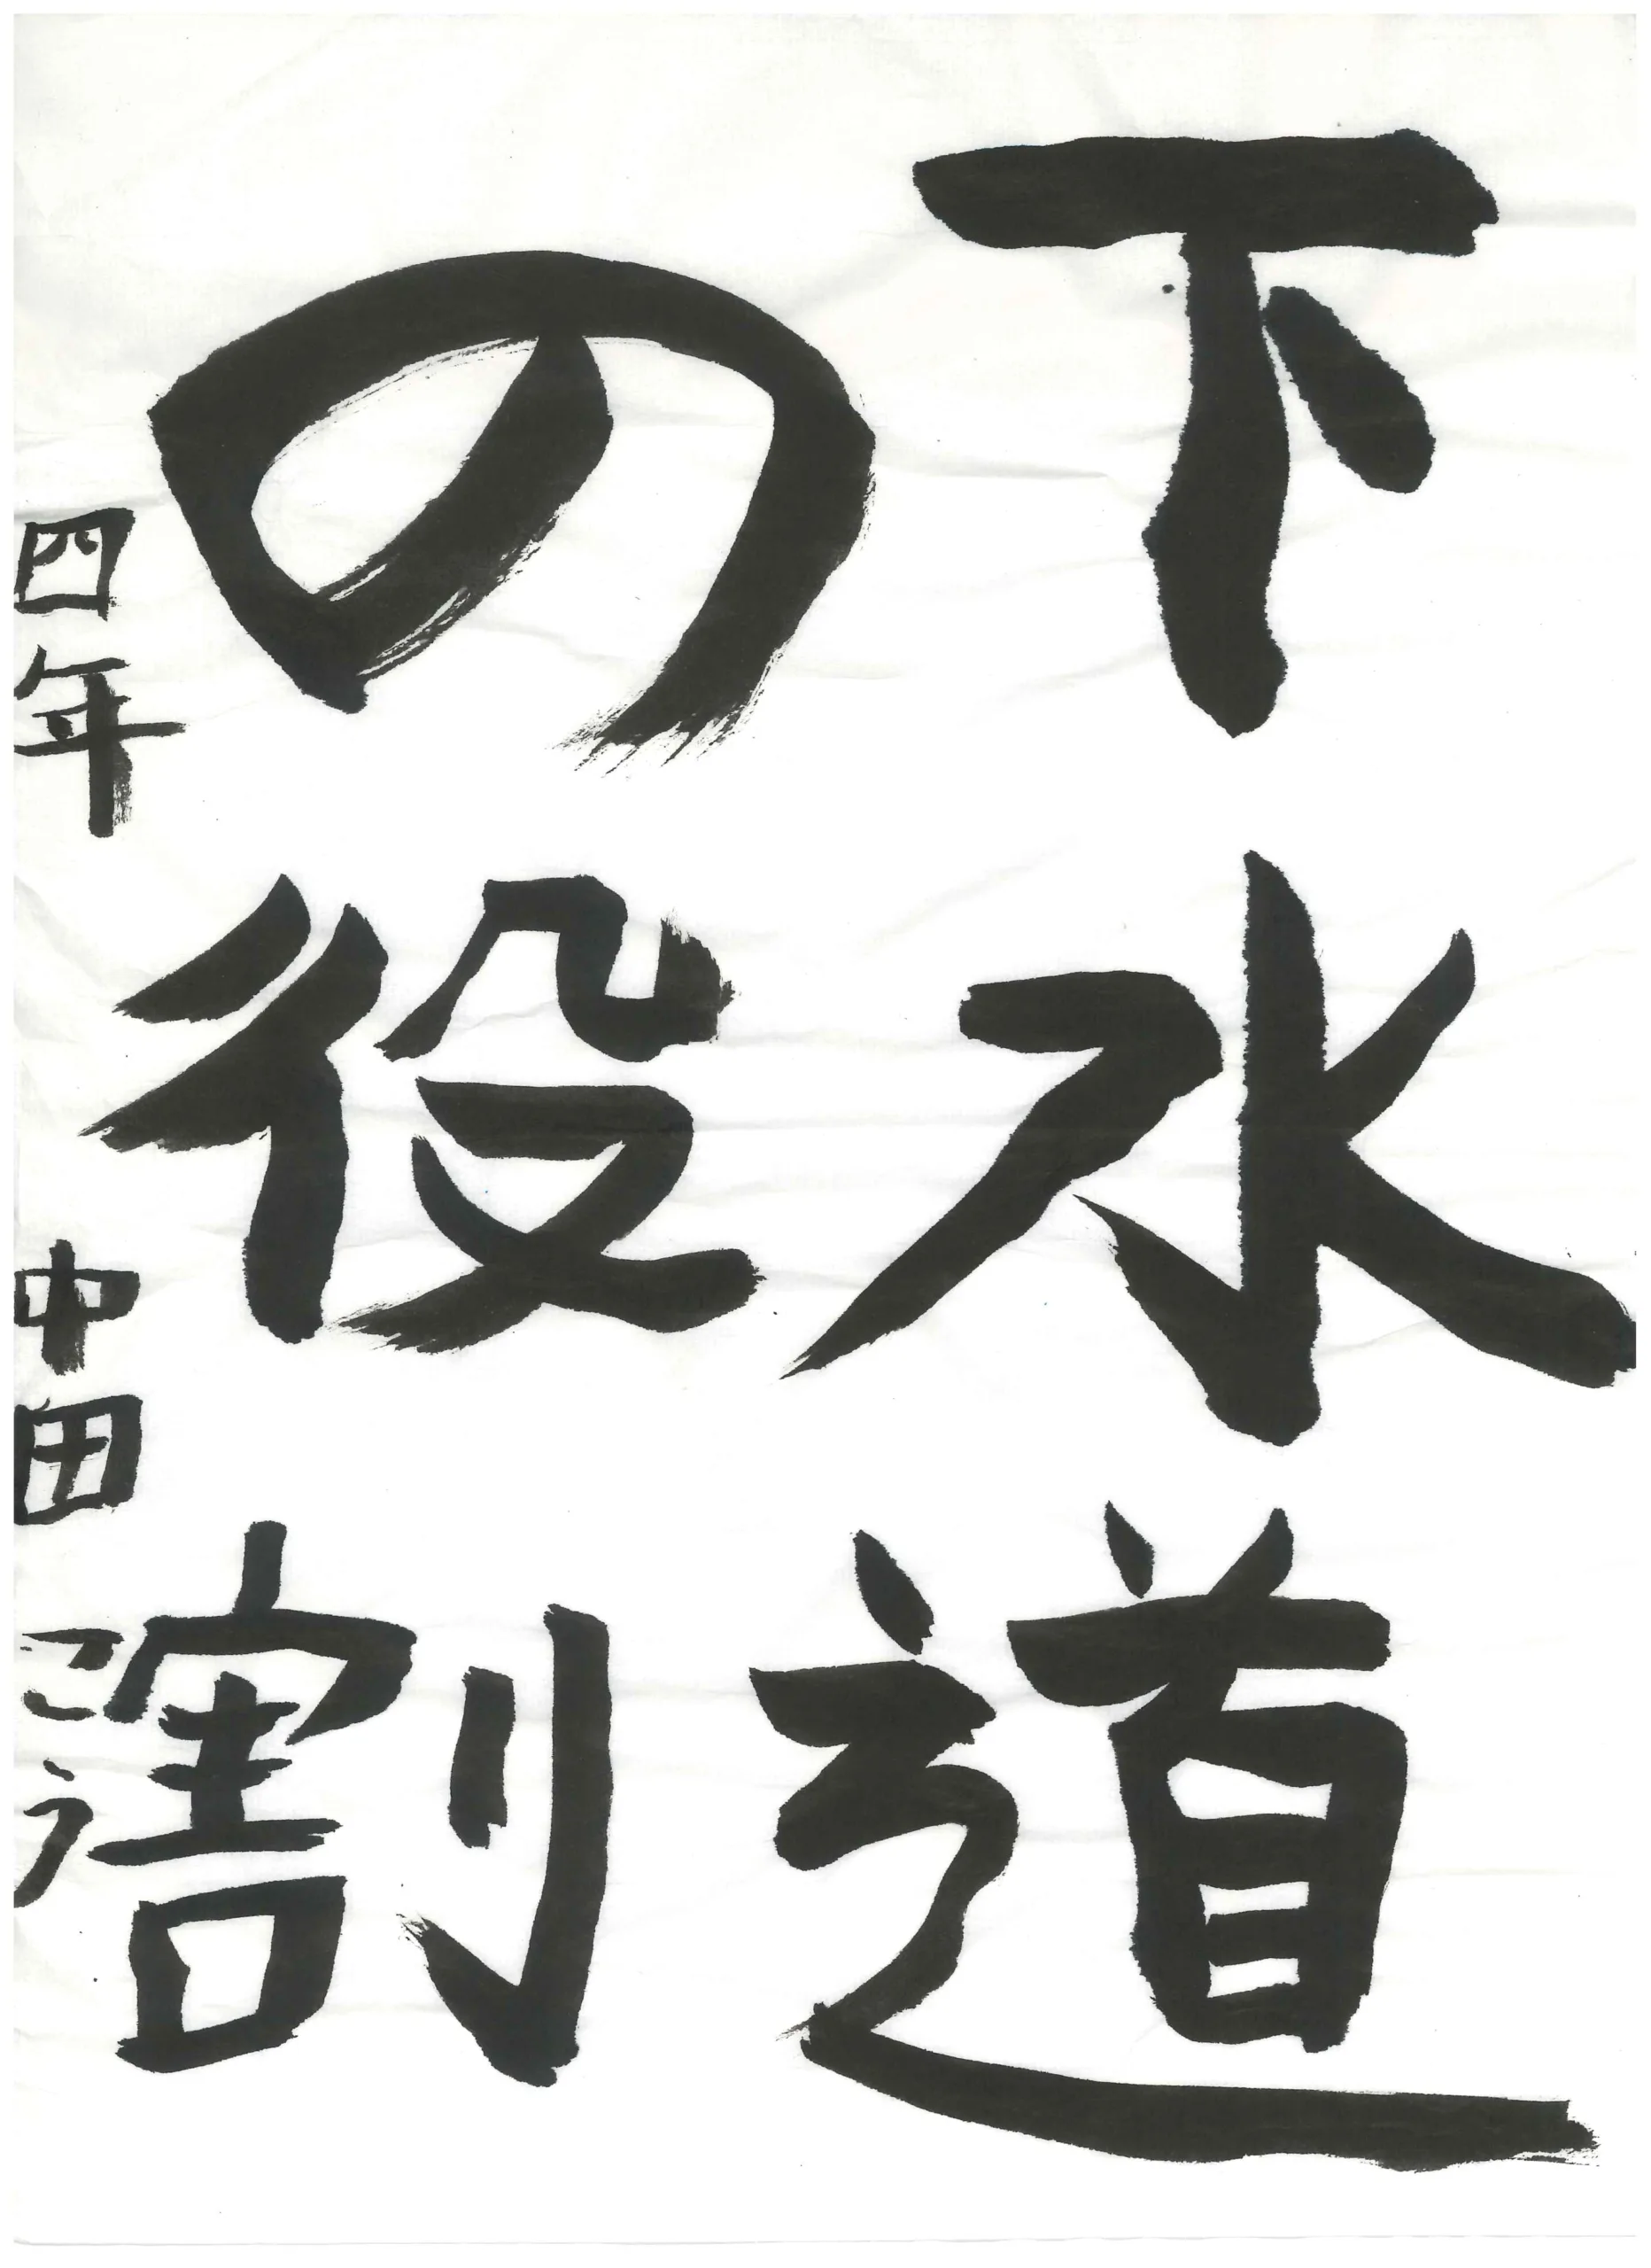 下水道
の役割
四年 中田こう